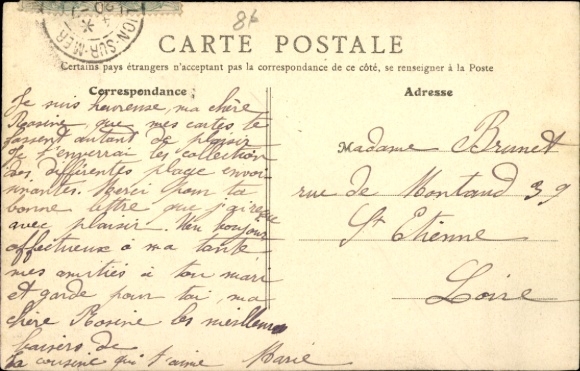 86
ION-SUR-MER
CARTE POSTALE
Certains pays étrangers n'acceptant pas la correspondance de ce côté, se renseigner à la Poste
Correspondance:
Je suis heureuse, ma chère
Rosine, que mes cartes te
fassent autant de plaisir
Je t'enverrai les collection
des différentes plage envoi
nnantes. Merci pour ta
bonne lettre que j'ai reçue
avec plaisir. Un bonjour
affectueux à ma tante
mes amitiés à ton mari
et garde pour toi, ma
chère Rosine les meilleurs
baisers de
ta cousine qui t'aime Marie
Adresse
Madame Brunet
rue de Montaud 39
St Etienne
Loire